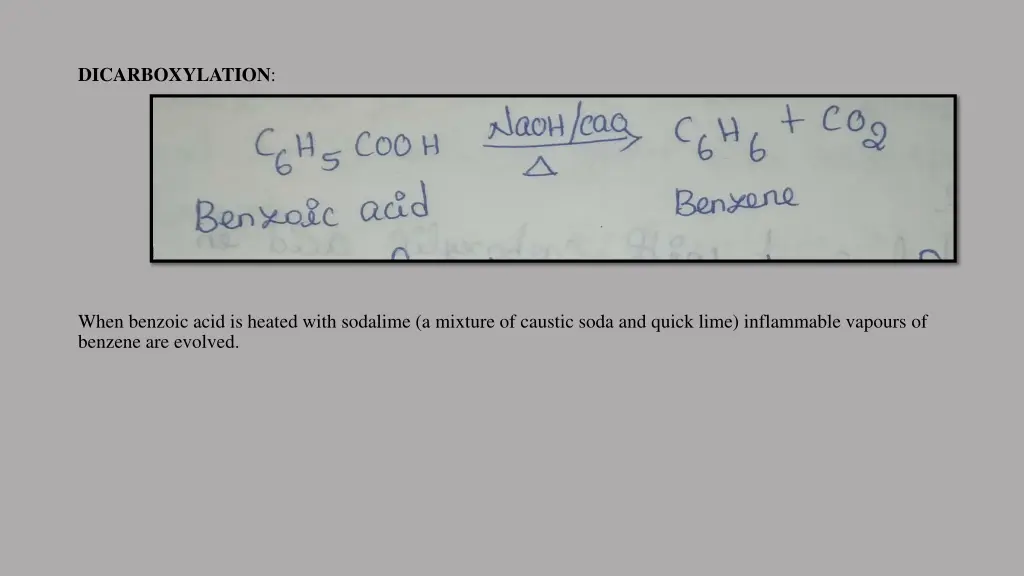 DICARBOXYLATION:
C6H5COOH NaOH/CaO Δ C6H6 + CO2
Benzoic acid Benzene
When benzoic acid is heated with sodalime (a mixture of caustic soda and quick lime) inflammable vapours of
benzene are evolved.